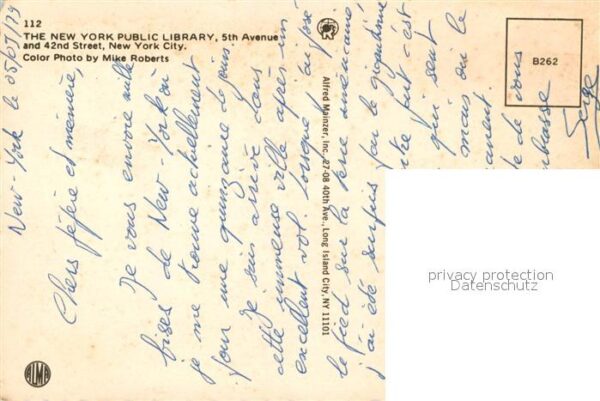 112
THE NEW YORK PUBLIC LIBRARY, 5th Avenue
and 42nd Street, New York City.
Color Photo by Mike Roberts
Alfred Mainzer, Inc., 27-08 40th Ave., Long Island City, NY 11101
B262
ALMA
New York le 05/07/79
Chers pépère et mémère,
Je vous envoie mille
bises de New-York où
je me trouve actuellement
pour une quinzaine de jours.
Je suis arrivé dans
cette immense ville après un
excellent vol. Lorsque j'ai posé
le pied sur la terre américaine
j'ai été surpris par le gigantisme
tout c'est
qui sent
mais où le
de vous
embrasse
Serge
privacy protection
Datenschutz